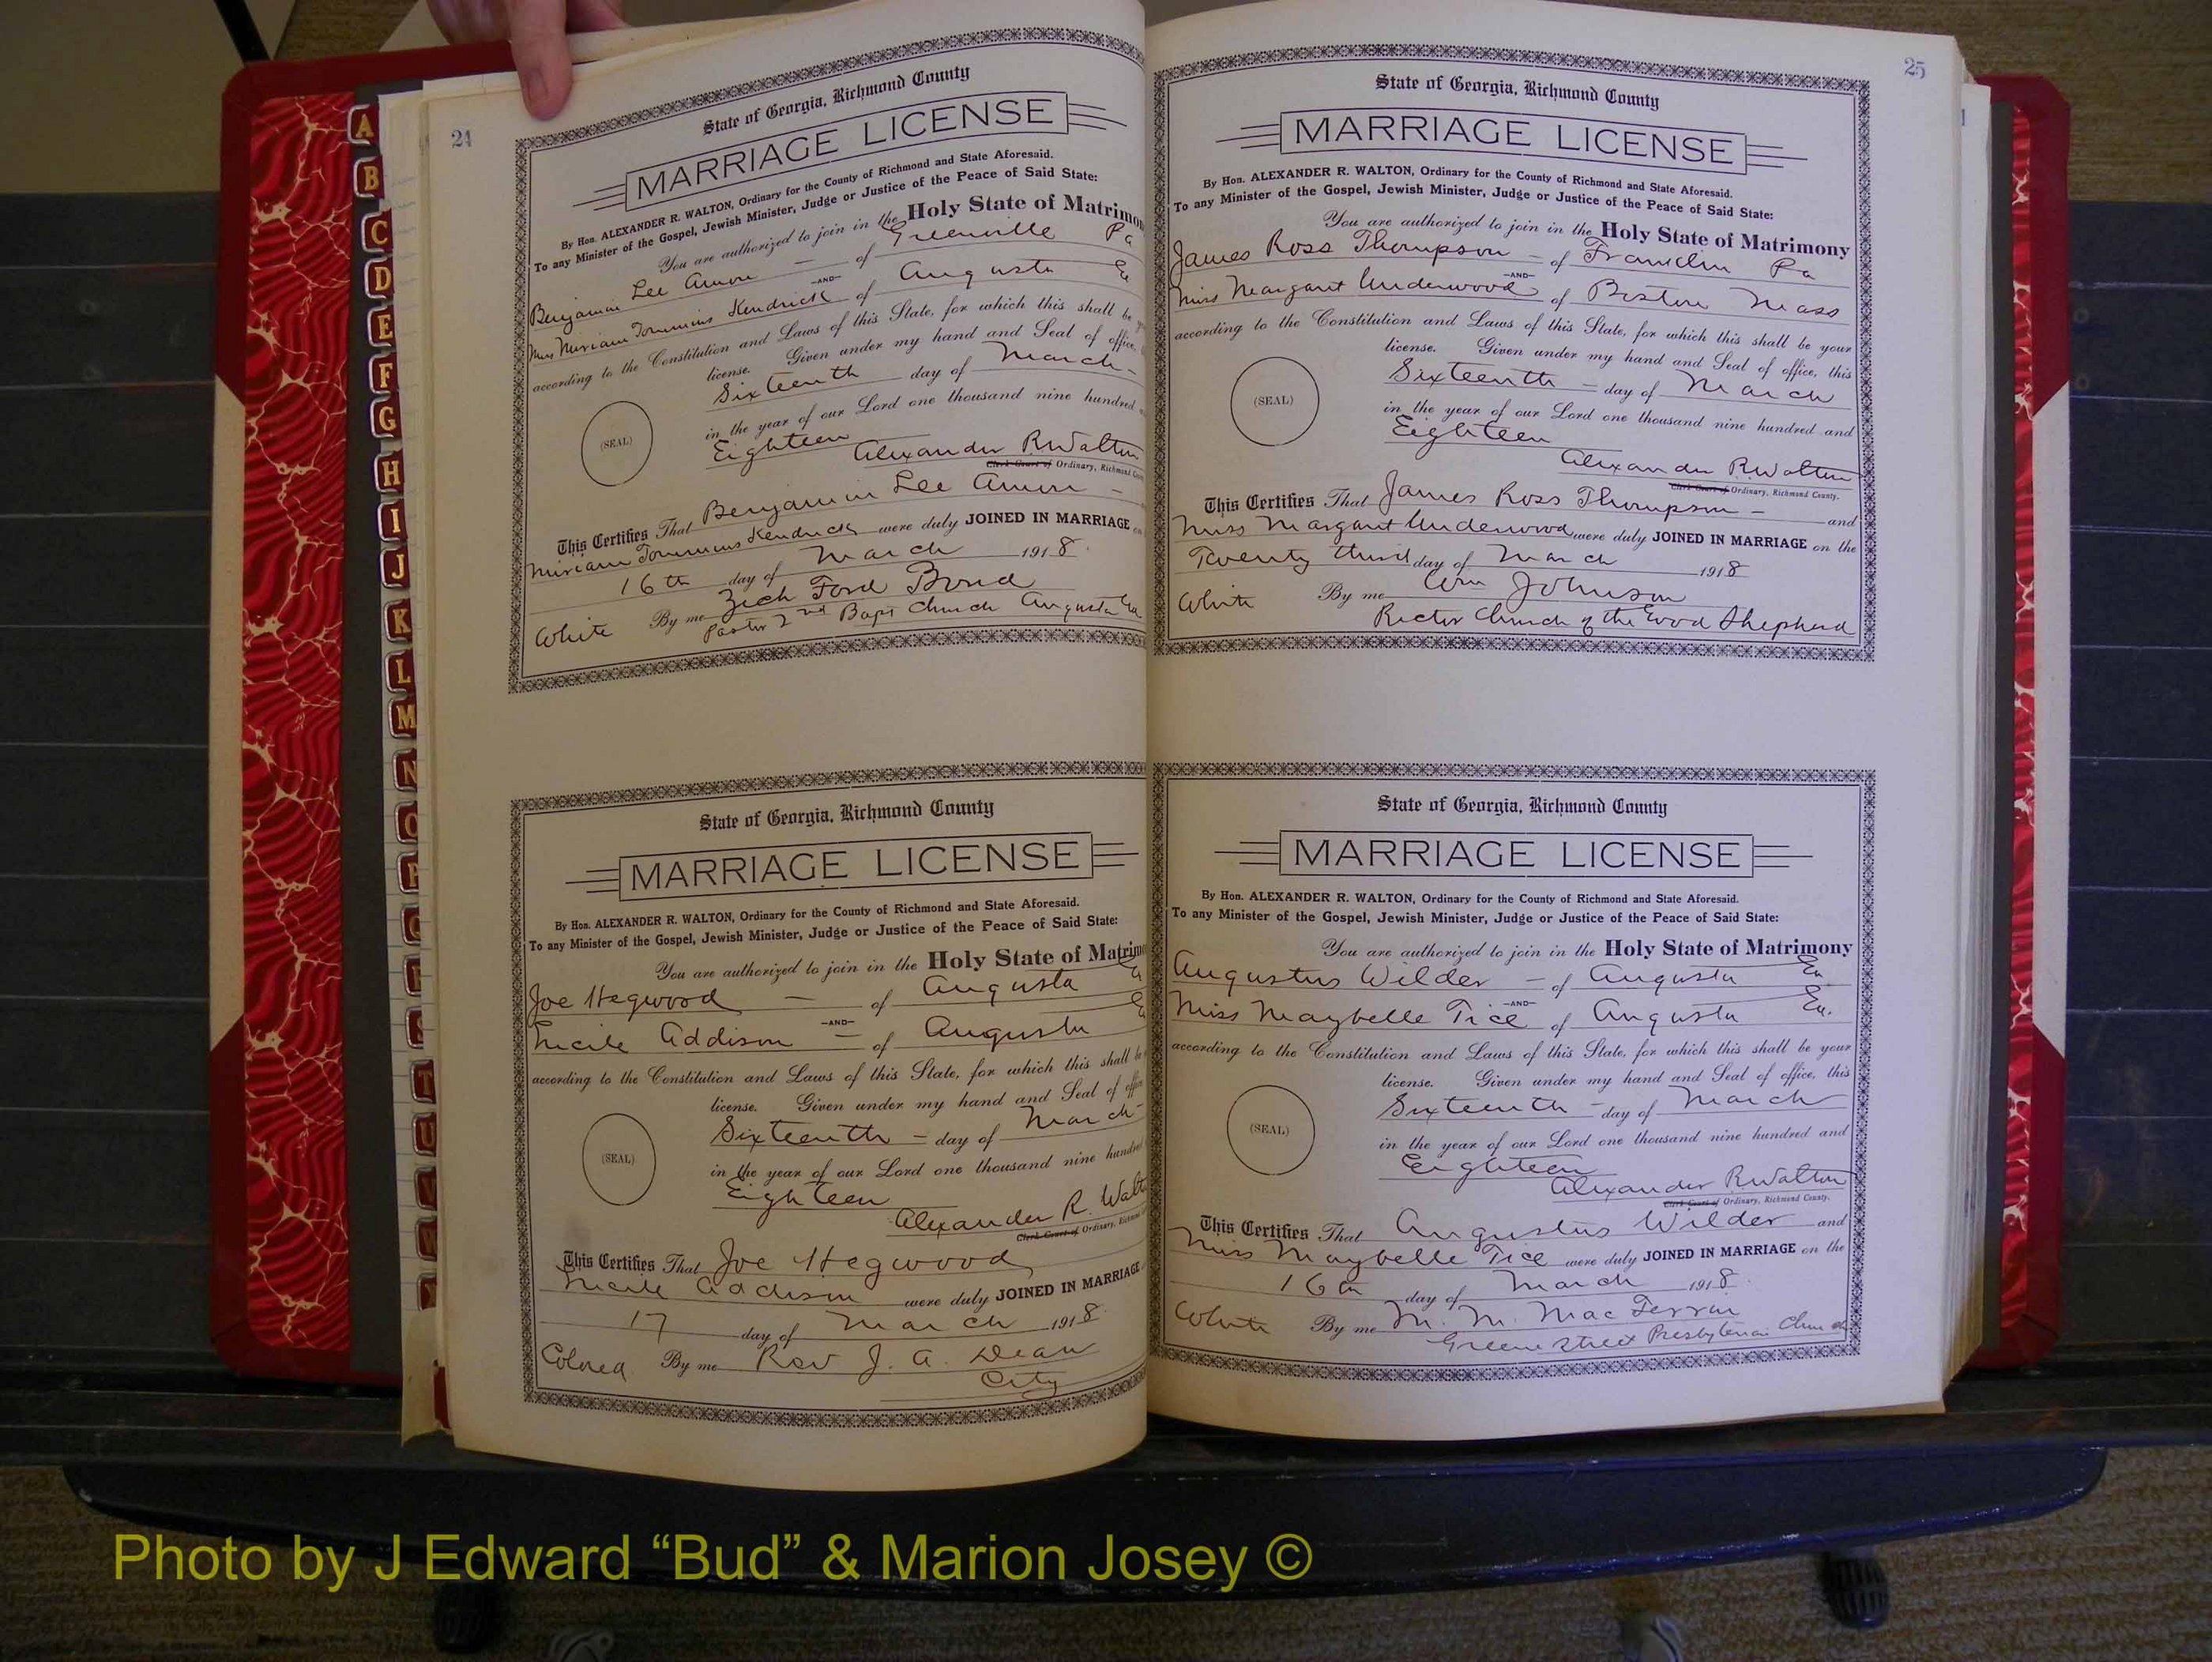 A
B
C
D
E
F
G
H
I
J
K
L
M
N
O
P
Q
R
S
T
U
V
W
X
24
State of Georgia, Richmond County
MARRIAGE LICENSE
By Hon. ALEXANDER R. WALTON, Ordinary for the County of Richmond and State Aforesaid.
To any Minister of the Gospel, Jewish Minister, Judge or Justice of the Peace of Said State:
You are authorized to join in the Holy State of Matrimon
Benjamin Lee — of Greenville Pa
—AND—
Miss Miriam Kendrick of Augusta Ga
according to the Constitution and Laws of this State, for which this shall be
license. Given under my hand and Seal of office,
Sixteenth day of March -
(SEAL)
in the year of our Lord one thousand nine hundred
Eighteen
Alexander R Walton
Clerk Court of Ordinary, Richmond
This Certifies That Benjamin Lee
Miriam Kendrick were duly JOINED IN MARRIAGE
16th day of March 1918.
White By me Zach Ford Bond
Pastor 2nd Bapt Church Augusta Ga
State of Georgia, Richmond County
MARRIAGE LICENSE
By Hon. ALEXANDER R. WALTON, Ordinary for the County of Richmond and State Aforesaid.
To any Minister of the Gospel, Jewish Minister, Judge or Justice of the Peace of Said State:
You are authorized to join in the Holy State of Matrimo
Joe Hegwood — of Augusta Ga
—AND—
Lucile Addison — of Augusta G
according to the Constitution and Laws of this State, for which this shall be
license. Given under my hand and Seal of office
Sixteenth — day of March -
(SEAL)
in the year of our Lord one thousand nine hundred
Eighteen
Alexander R. Walto
Clerk Court of Ordinary,
This Certifies That Joe Hegwood
Lucile Addison were duly JOINED IN MARRIAGE
17 day of March 1918.
Colored By me Rev J. A. Dean
City
25
State of Georgia, Richmond County
MARRIAGE LICENSE
By Hon. ALEXANDER R. WALTON, Ordinary for the County of Richmond and State Aforesaid.
To any Minister of the Gospel, Jewish Minister, Judge or Justice of the Peace of Said State:
You are authorized to join in the Holy State of Matrimony
James Ross Thompson — of Franklin Pa
—AND—
Miss Margaret Underwood of Boston Mass
according to the Constitution and Laws of this State, for which this shall be your
license. Given under my hand and Seal of office, this
Sixteenth — day of March
(SEAL)
in the year of our Lord one thousand nine hundred and
Eighteen
Alexander R Walton
Clerk Court of Ordinary, Richmond County.
This Certifies That James Ross Thompson — and
Miss Margaret Underwood were duly JOINED IN MARRIAGE on the
Twenty third day of March 1918
White By me Wm Johnson
Rector Church of the Good Shepherd
State of Georgia, Richmond County
MARRIAGE LICENSE
By Hon. ALEXANDER R. WALTON, Ordinary for the County of Richmond and State Aforesaid.
To any Minister of the Gospel, Jewish Minister, Judge or Justice of the Peace of Said State:
You are authorized to join in the Holy State of Matrimony
Augustus Wilder — of Augusta Ga
—AND—
Miss Maybelle Tice of Augusta Ga.
according to the Constitution and Laws of this State, for which this shall be your
license. Given under my hand and Seal of office, this
Sixteenth — day of March
(SEAL)
in the year of our Lord one thousand nine hundred and
Eighteen
Alexander R Walton
Clerk Court of Ordinary, Richmond County.
This Certifies That Augustus Wilder and
Miss Maybelle Tice were duly JOINED IN MARRIAGE on the
16th day of March 1918.
White By me M. M. MacFerrin
Greene Street Presbyterian Church
Photo by J Edward “Bud” & Marion Josey ©